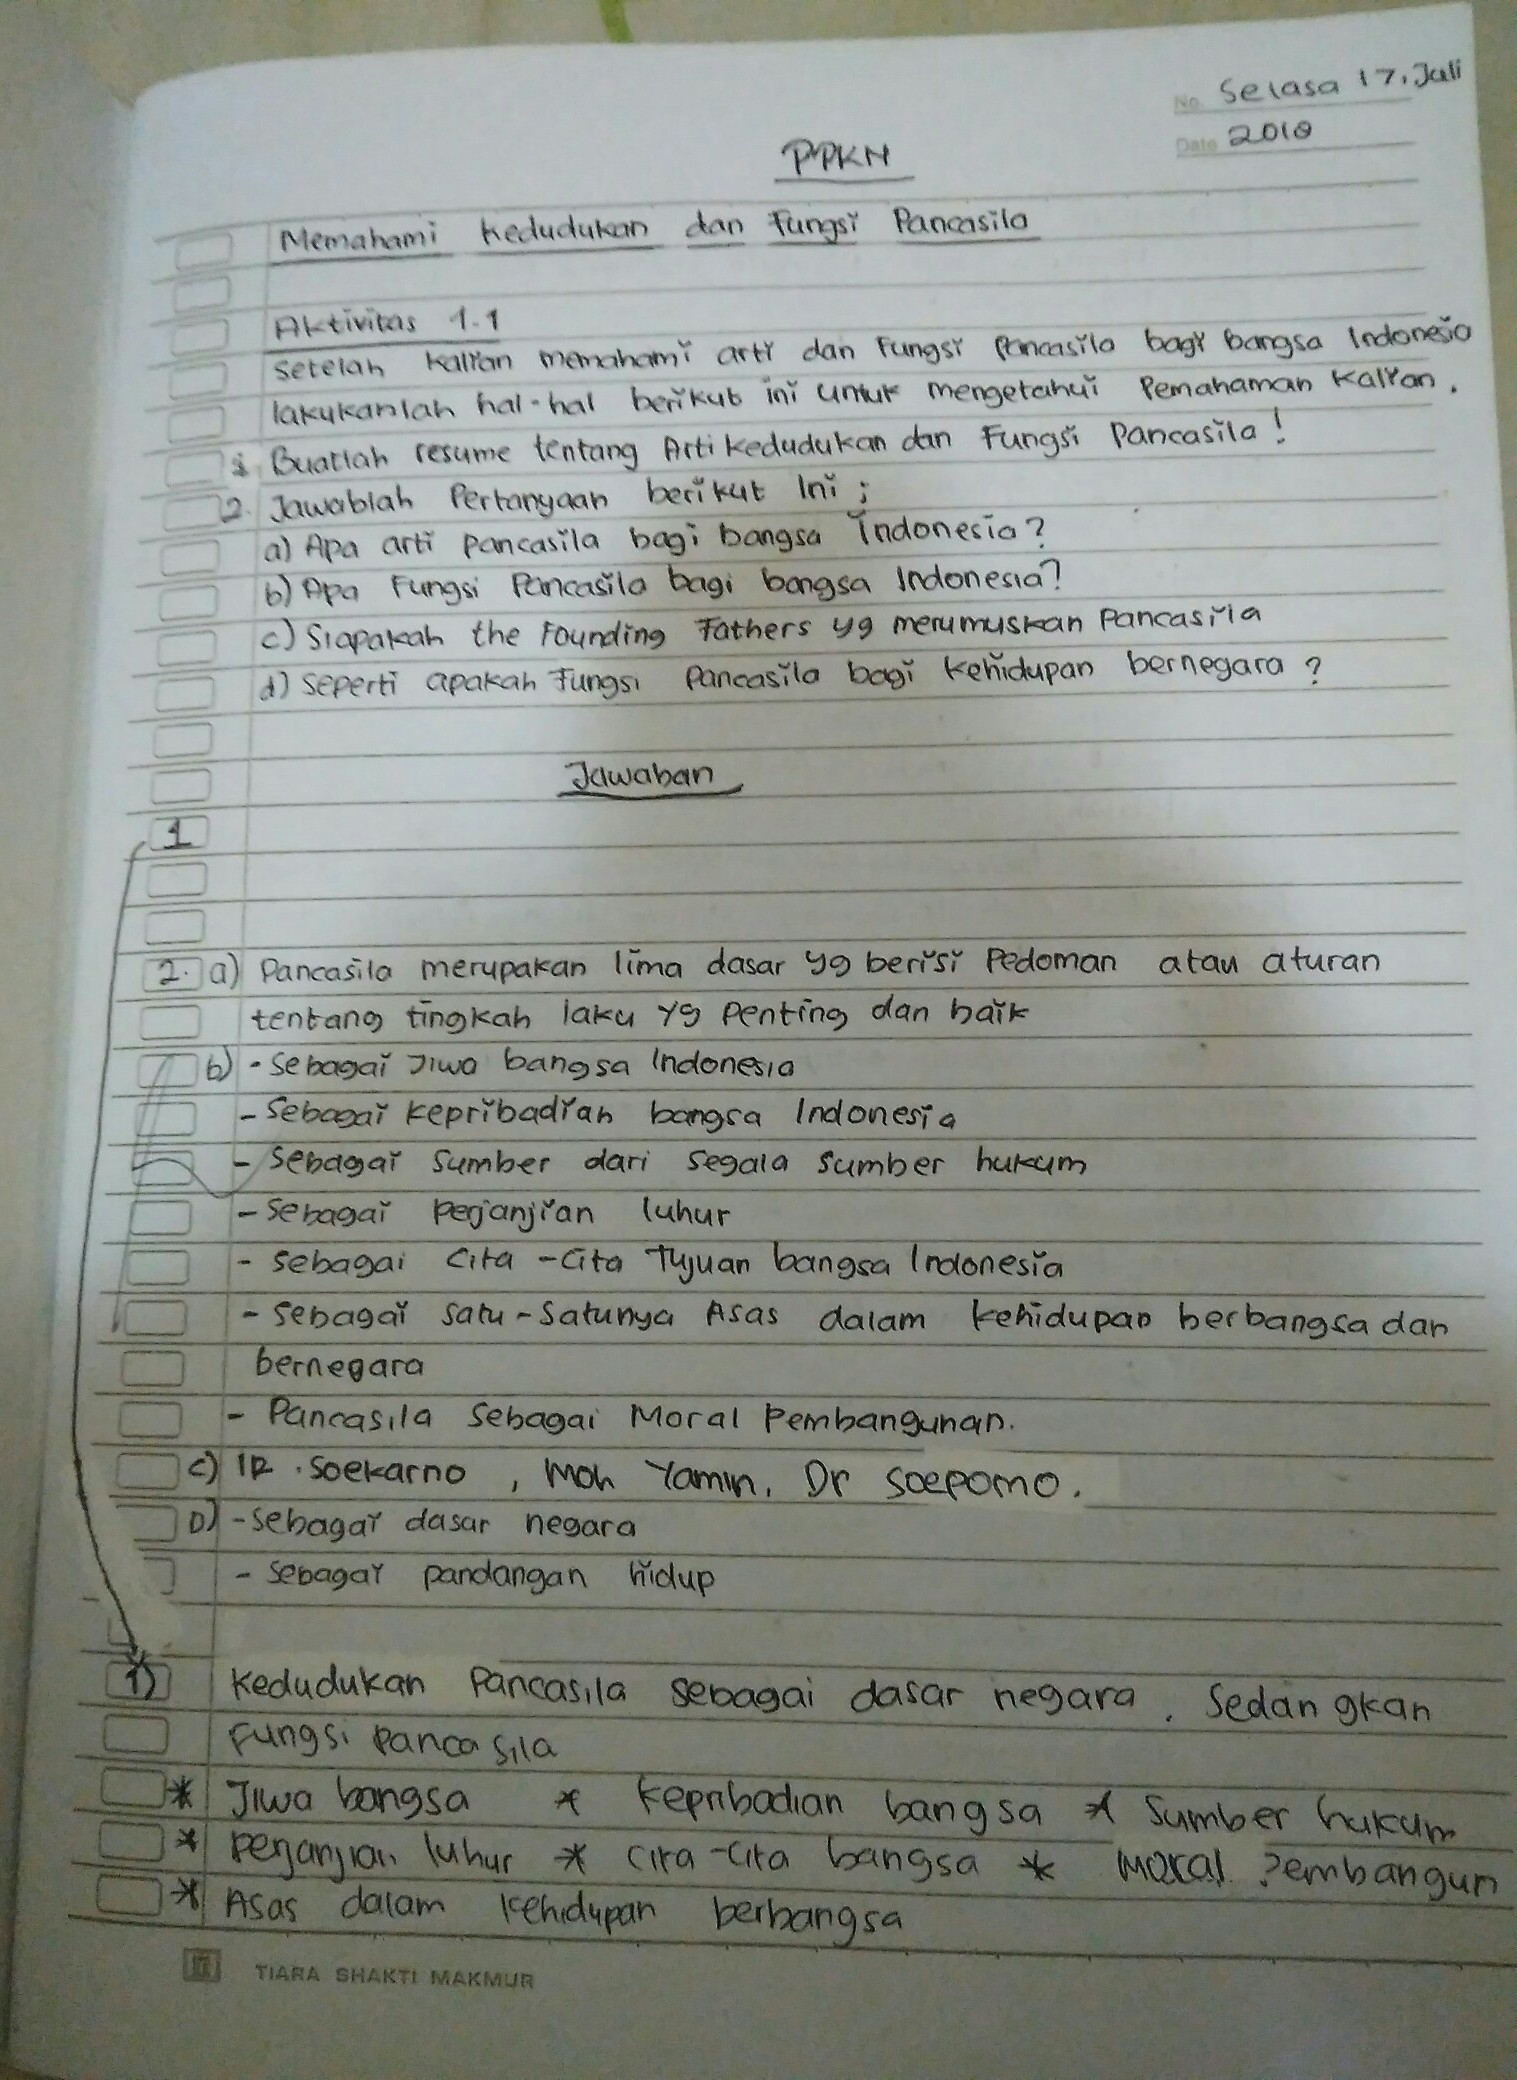 No. Selasa 17, Juli
Date 2018
PPKN
Memahami Kedudukan dan Fungsi Pancasila
Aktivitas 1.1
Setelah kalian memahami arti dan fungsi pancasila bagi bangsa Indonesia
lakukanlah hal-hal berikut ini untuk mengetahui Pemahaman Kalian.
1. Buatlah resume tentang Arti kedudukan dan Fungsi Pancasila!
2. Jawablah Pertanyaan berikut Ini ;
a) Apa arti pancasila bagi bangsa Indonesia?
b) Apa Fungsi Pancasila bagi bangsa Indonesia?
c) Siapakah the Founding Fathers yg merumuskan Pancasila
d) Seperti apakah Fungsi Pancasila bagi kehidupan bernegara ?
Jawaban
1
2. a) Pancasila merupakan lima dasar yg berisi Pedoman atau aturan
tentang tingkah laku yg Penting dan baik
b) - Sebagai Jiwa bangsa Indonesia
- Sebagai kepribadian bangsa Indonesia
- Sebagai Sumber dari segala sumber hukum
- Sebagai Perjanjian luhur
- Sebagai Cita - Cita Tujuan bangsa Indonesia
- Sebagai Satu - Satunya Asas dalam kehidupan berbangsa dan
bernegara
- Pancasila Sebagai Moral Pembangunan.
c) IR . Soekarno , Moh Yamin, Dr Soepomo.
D) - Sebagai dasar negara
- Sebagai pandangan hidup
1) Kedudukan Pancasila sebagai dasar negara . Sedangkan
Fungsi Pancasila
* Jiwa bangsa * kepribadian bangsa * Sumber hukum
* Perjanjian luhur * Cita-Cita bangsa * Moral Pembangun
* Asas dalam kehidupan berbangsa
TIARA SHAKTI MAKMUR